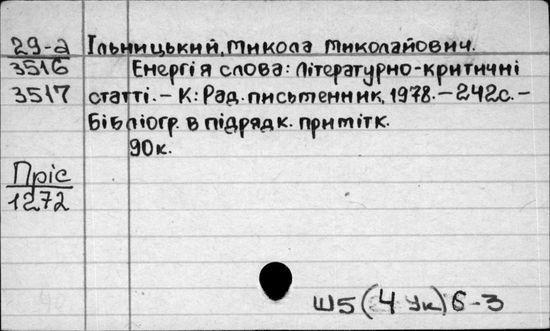 29-а Ільницький, Микола Миколайович.
3516 Енергія слова: Літературно-критичні
3517 статті. – К: Рад. письменник, 1978. – 242с. –
Бібліогр. в підрядк. примітк.
90к.
Пріс
1272
Ш5(4Ук)6-3